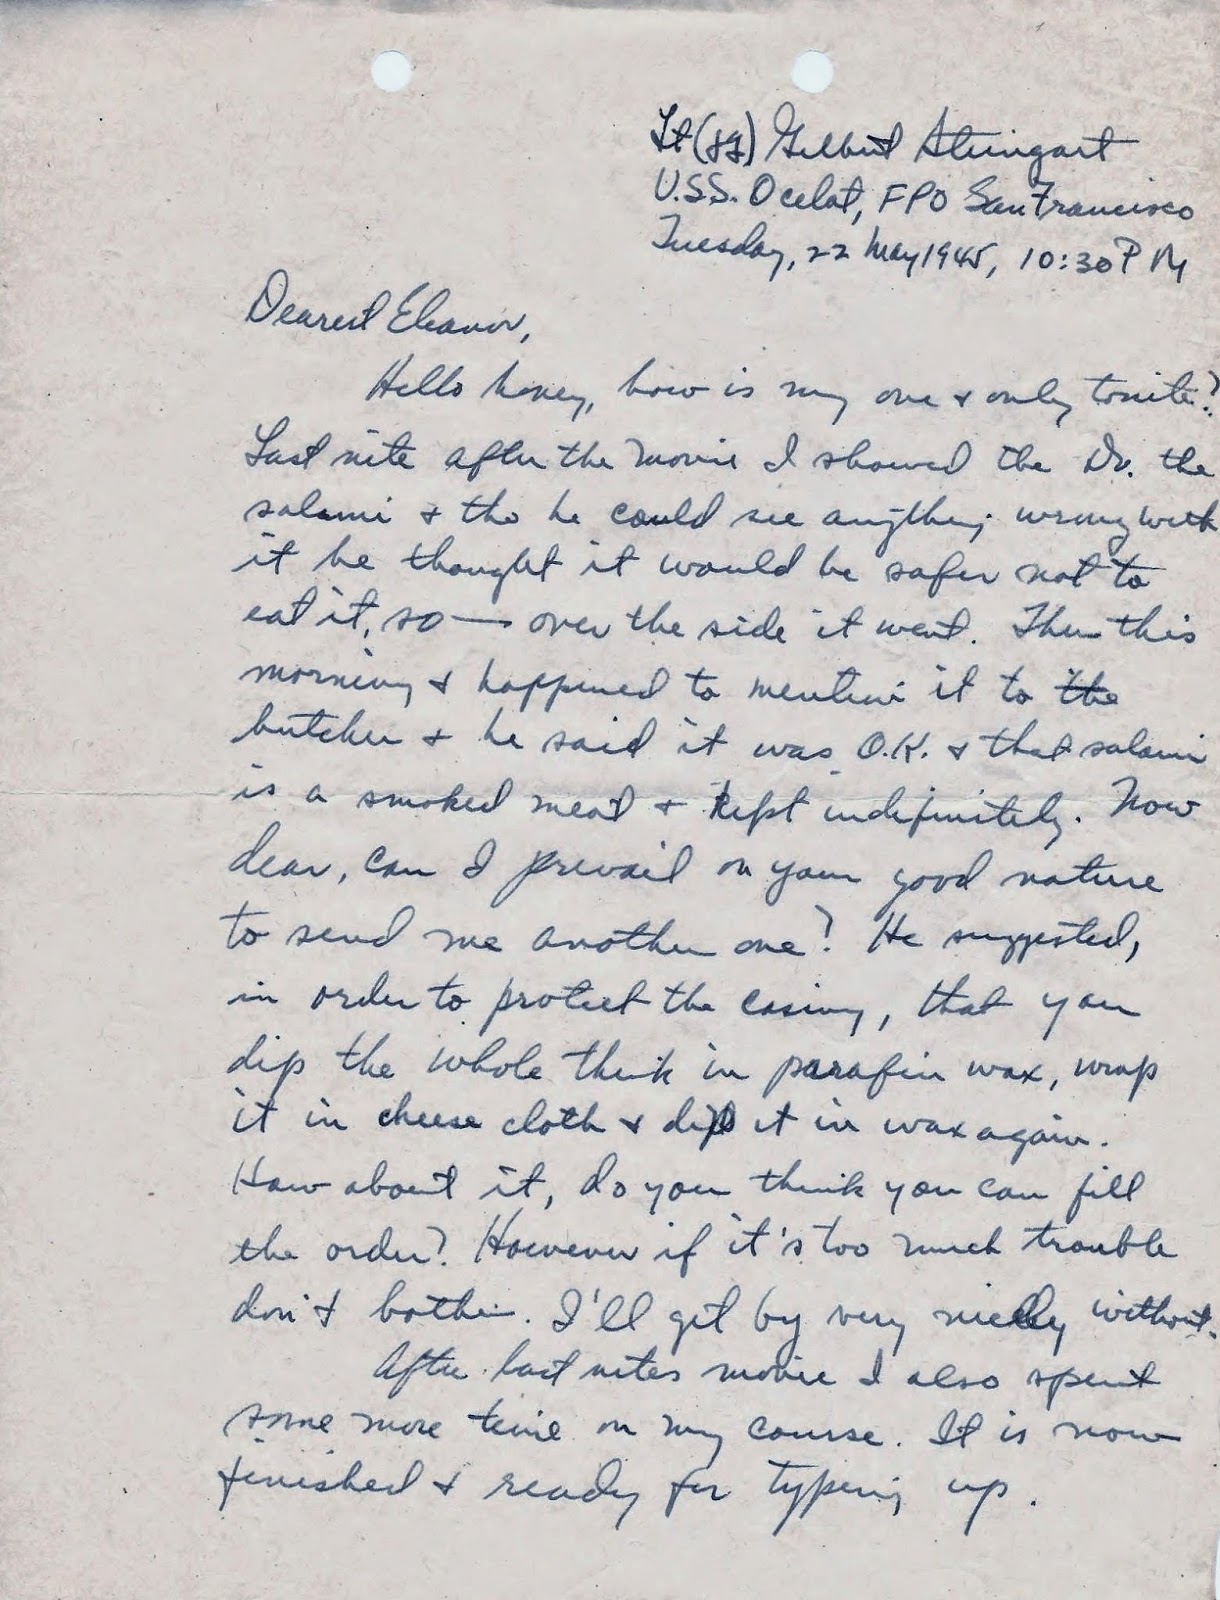 Lt (jg) Gilbert Steingart
U.S.S. Ocelot, FPO San Francisco
Tuesday, 22 May 1945, 10:30 PM
Dearest Eleanor,
Hello honey, how is my one & only tonite?
Last nite after the movie I showed the Dr. the
salami & tho he could see anything wrong with
it he thought it would be safer not to
eat it, so — over the side it went. Then this
morning I happened to mention it to the
butcher & he said it was O.K. & that salami
is a smoked meat & kept indefinitely. Now
dear, can I prevail on your good nature
to send me another one? He suggested,
in order to protect the casing, that you
dip the whole think in parafin wax, wrap
it in cheese cloth & dip it in wax again.
How about it, do you think you can fill
the order? However if it's too much trouble
don't bother. I'll get by very nicely without.
After last nites movie I also spent
some more time on my course. It is now
finished & ready for typing up.